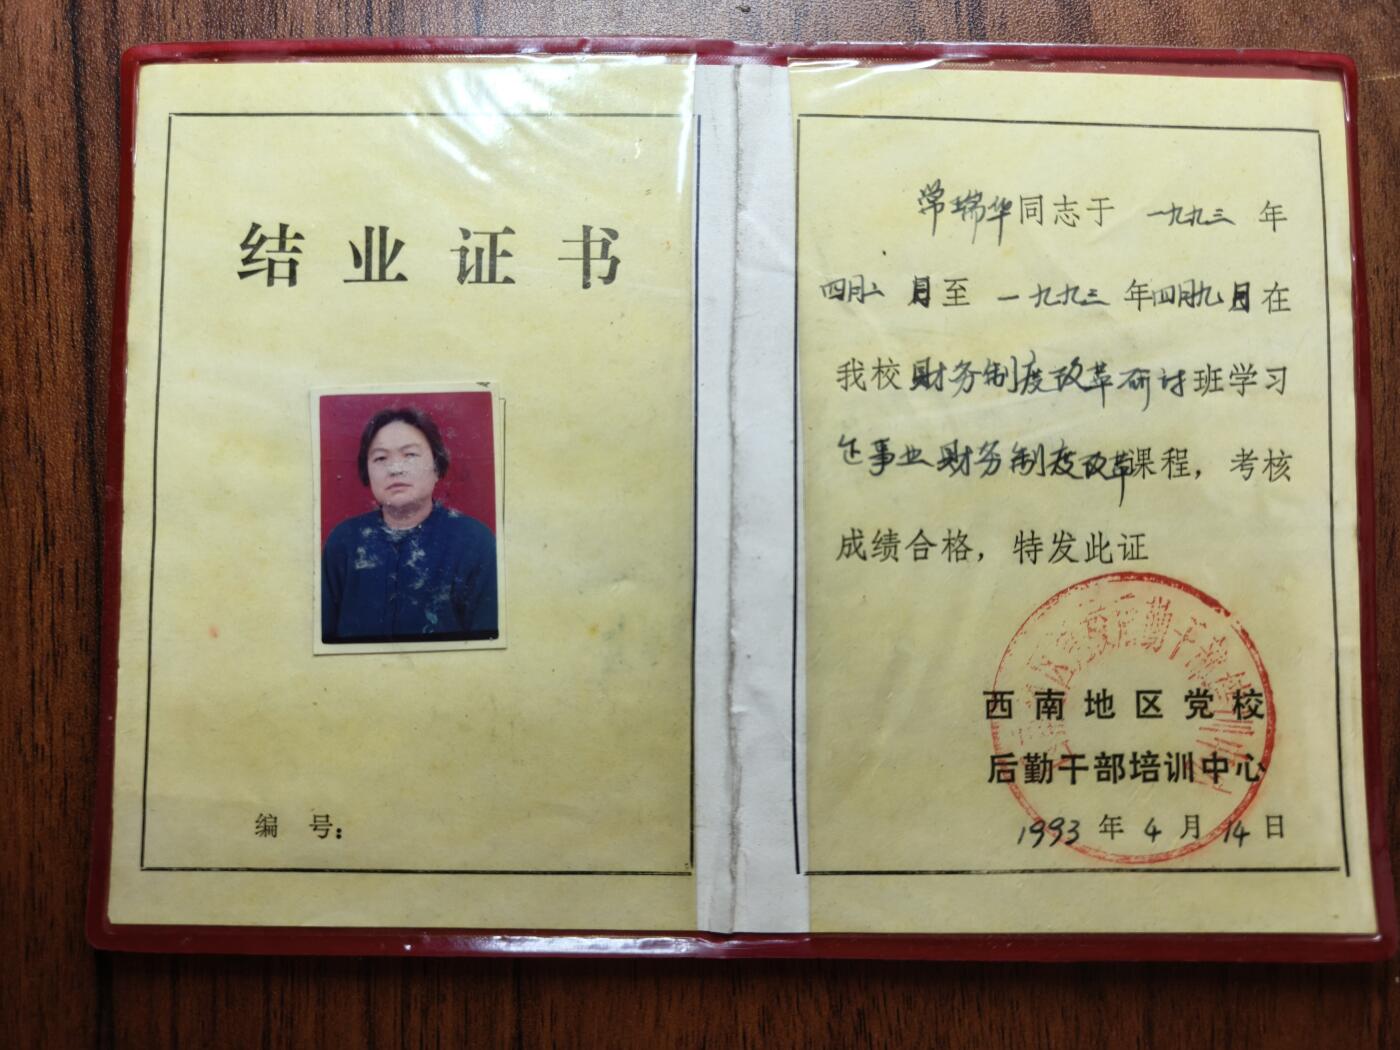 结业证书
编 号:
常瑞华同志于 一九九三 年
四月二 日至 一九九三 年四月九日在
我校财务制度改革研讨班学习
企事业财务制度改革课程，考核
成绩合格，特发此证
西南地区党校
后勤干部培训中心
1993 年 4 月 14 日